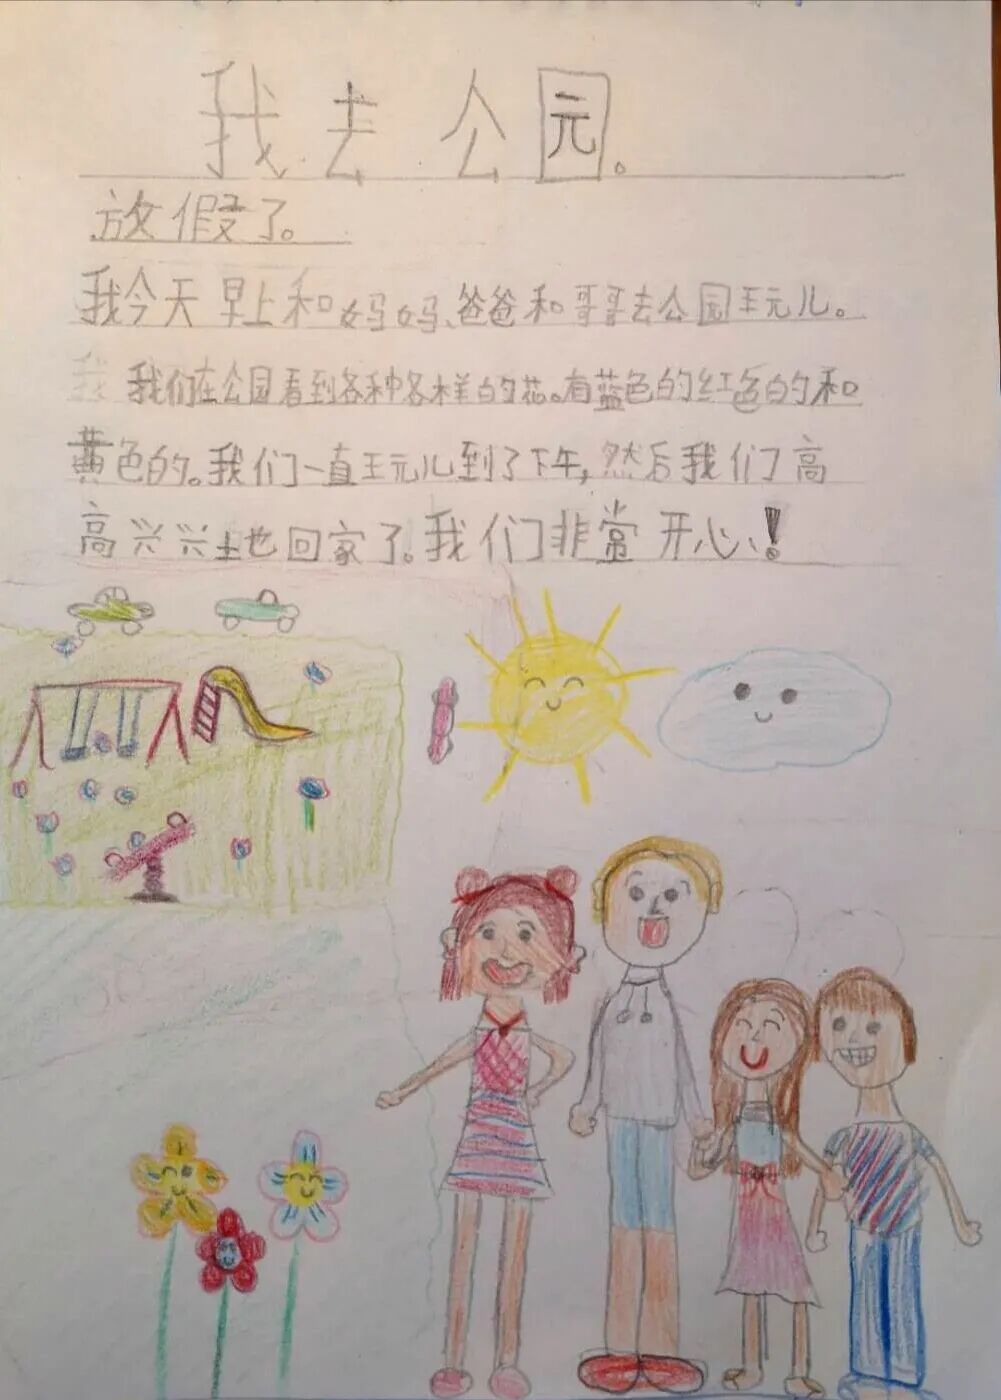 我去公园。
放假了。
我今天早上和妈妈、爸爸和哥哥去公园玩儿。
我 我们在公园看到各种各样的花。有蓝色的红色的和
黄色的。我们一直玩儿到了下午,然后我们高
高兴兴地回家了。我们非常开心!